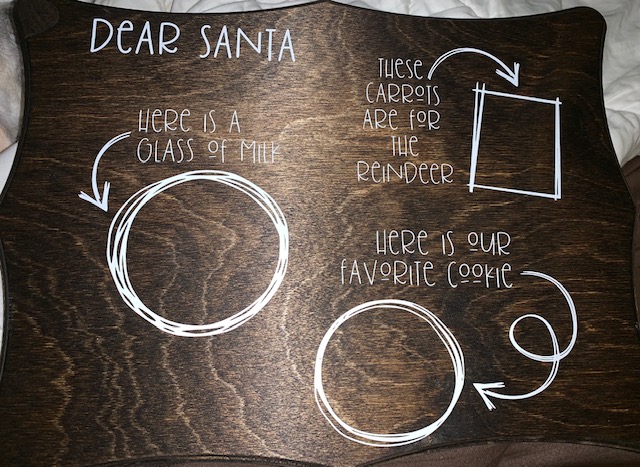 DEAR SANTA
HERE IS A
GLASS OF MILK
THESE
CARROTS
ARE FOR
THE
REINDEER
HERE IS OUR
FAVORITE COOKIE